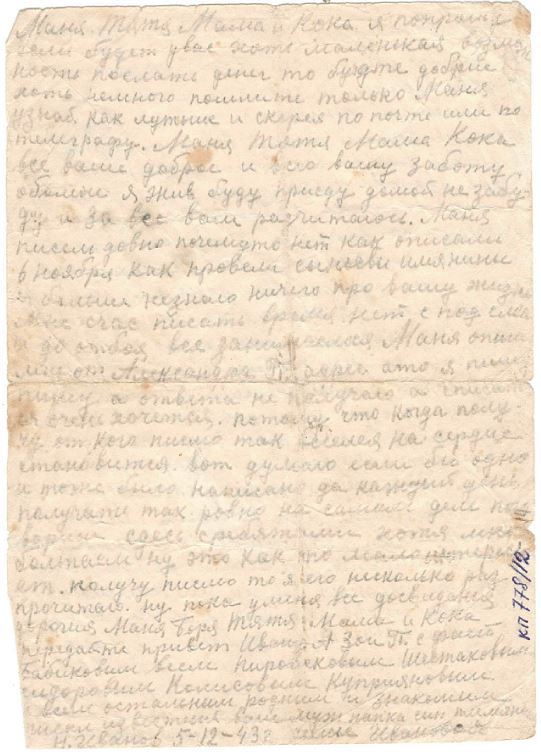 Маня. Тятя Мама и Кока я попрашу
если будет увас хоть маленькая возмож
ность послать денег то будте добрые
хоть немного пошлите только Маня
узнай как лутьше и скорея по почте или по
телеграфу. Маня Тятя Мама Кока
все ваше доброе и всю вашу заботу
обомне я жив буду приеду домой не забу-
ду и за все вам расчитаюсь. Маня
писем довно почемуто нет как описали
6 ноября как провели имянины
и больше незнаю ничего про вашу жизнь
мне счас писать время нет с подъема
и до отбоя все занимаемся Маня
мне от Александра П. адрес ато я пишу
пишу а ответа не получаю а списать
ся очень хочется. потому что когда полу-
чу от кого письмо так веселея на сердце
становится. вот думаю если бы одно
и тоже было написано да каждый день
получать так ровно на самом деле
хотя
ну это как то мало
получу письмо то я его несколько раз
прочитаю. ну пока уменя все досвидания
Маня Боря Тятя Мама и Кока
передайте привет Ивану А Зои П. с
Бабиковым всем Шестаковым
Куприяновым
и всем остальным родным и знакомым
писал известный вам муж папка син
Н. Иванов 5-12-43г Иванова
кп 778/12-